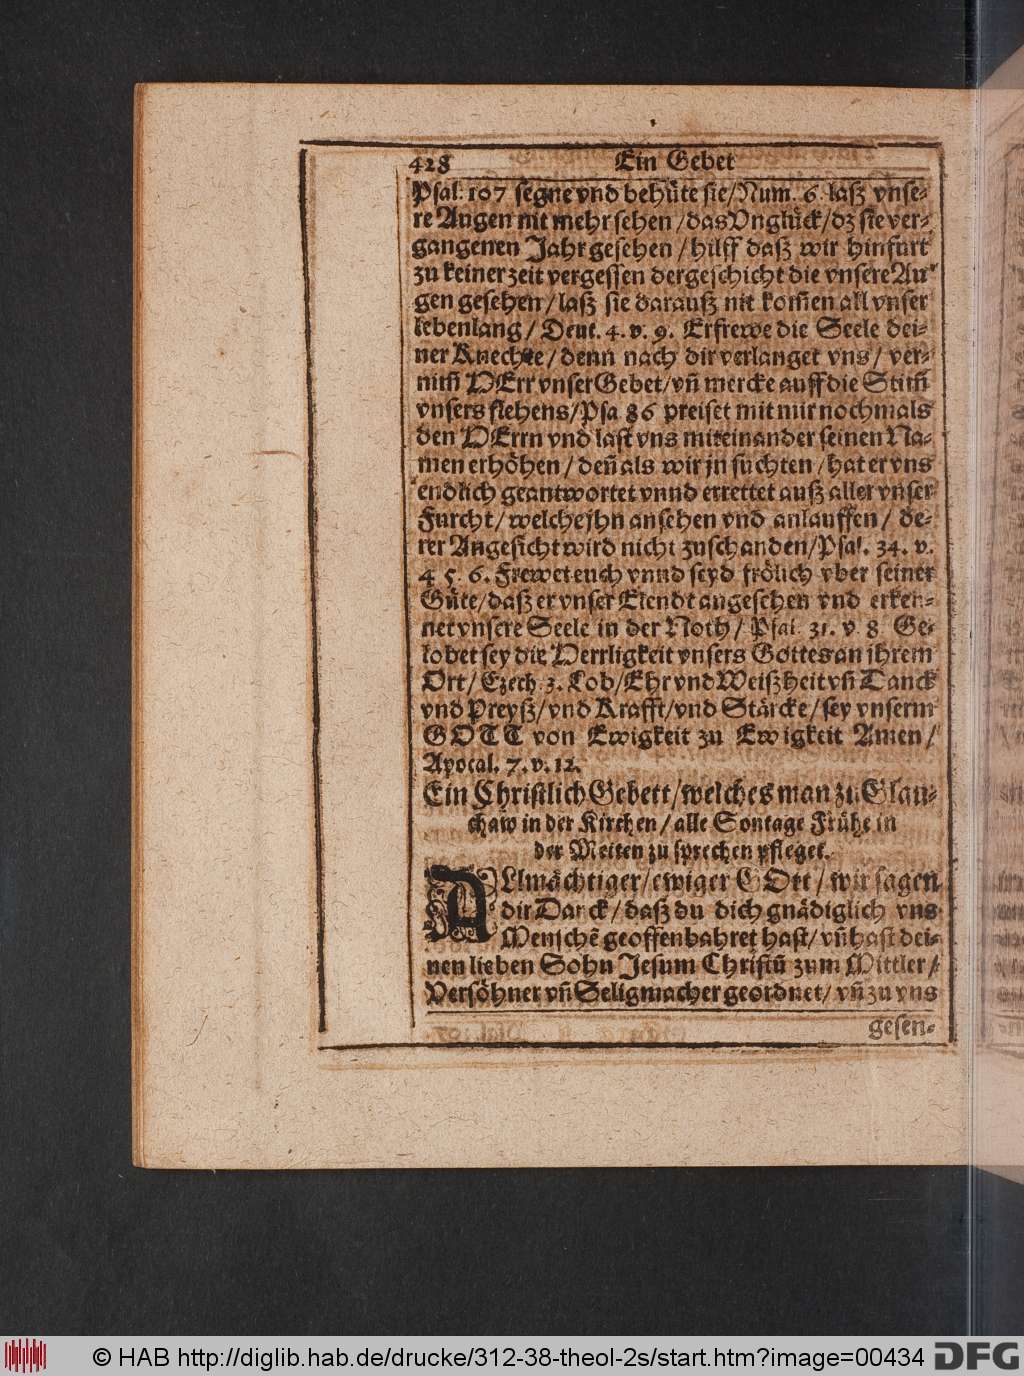 428 Ein Gebet
Psal. 107 segne vnd behüte sie/Num. 6. laß vnse-
re Augen nit mehr sehen/das Vnglück/dz sie ver-
gangenen Jahr gesehen/hilff daß wir hinfurt
zu keiner zeit vergessen der geschicht die vnsere Au-
gen gesehen/laß sie darauß nit kom̃en all vnser
lebenlang/Deut. 4. v. 9. Erfrewe die Seele dei-
ner Knechte/denn nach dir verlanget vns/ver-
nim̃ HErr vnser Gebet/vñ mercke auff die Stim̃
vnsers flehens/Psa 86 preiset mit mir nochmals
den HErrn vnd last vns miteinander seinen Na-
men erhöhen/deñ als wir jn suchten/hat er vns
endlich geantwortet vnnd errettet auß aller vnser
Furcht/welche jhn ansehen vnd anlauffen/de-
rer Angesicht wird nicht zuschanden/Psal. 34. v.
4 5. 6. Frewet euch vnnd seyd frölich vber seiner
Güte/daß er vnser Elendt angesehen vnd erken-
net vnsere Seele in der Noth/Psal. 31. v. 8 Ge-
lobet sey die Herrligkeit vnsers Gottes an ihrem
Ort/Ezech. 3. Lob/Ehr vnd Weißheit vñ Danck
vnd Preyß/vnd Krafft/vnd Stärcke/sey vnserm
GOTT von Ewigkeit zu Ewigkeit Amen/
Apocal. 7. v. 12.
Ein Christlich Gebett/welches man zu Glau-
chaw in der Kirchen/alle Sontage Frühe in
der Metten zu sprechen pfleget.
ALlmächtiger/ewiger GOtt/wir sagen
dir Danck/daß du dich gnädiglich vns
Menschẽ geoffenbahret hast/vñ hast dei-
nen lieben Sohn Jesum Christũ zum Mittler/
Versöhner vñ Seligmacher geordnet/vñ zu vns
gesen-
© HAB http://diglib.hab.de/drucke/312-38-theol-2s/start.htm?image=00434
DFG